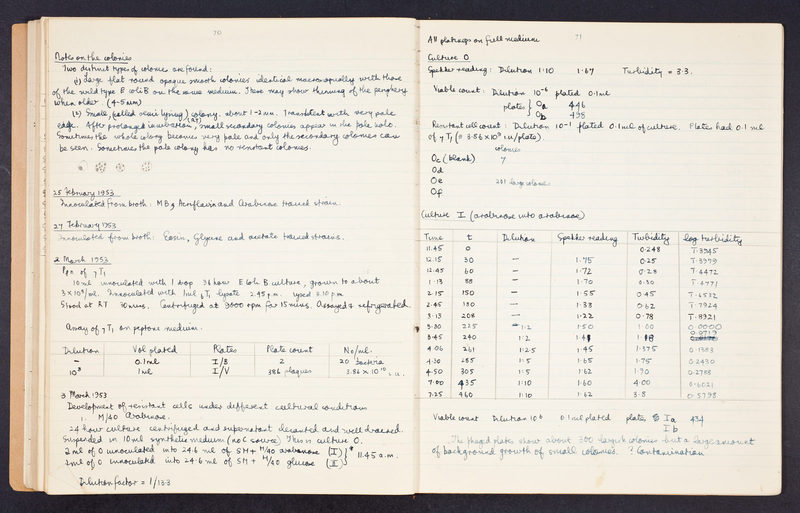 70
Notes on the colonies
Two distinct types of colonies are found:
(1) Large flat round opaque smooth colonies identical macroscopically with those
of the wild type E coli B on the same medium. These may show thinning of the periphery
when older. (4-5 mm)
(2) Small, colony, about 1-2 mm. Translucent with very pale
edge. After prolonged incubation, small secondary colonies appear in the pale halo.
Sometimes the whole colony becomes very pale and only the secondary colonies can
be seen. Sometimes the pale colony has no resistant colonies.
25 February 1953
Innoculated from broth: MB, Acriflavin and Arabinose trained strain.
27 February 1953
Innoculated from broth: Eosin, Glycine and acetate trained strains.
2 March 1953
Ppn of γ T1
10 ml innoculated with 1 drop 36 hour E coli B culture, grown to about
3 × 10⁸/ml. Innoculated with 1 ml γ T1 lysate 2.45 p.m. lysed 3.10 p.m.
Stood at RT 30 mins. Centrifuged at 3000 rpm for 15 mins. Assayed & refrigerated.
Assay of γ T1 on peptone medium.
Dilution Vol plated Plates Plate count No/ml.
— 0.1 ml I/B 2 20 bacteria
10⁸ 1 ml I/V 386 plaques 3.86 × 10¹⁰ i.u.
3 March 1953
Development of resistant cells under different cultural conditions
1. M/40 Arabinose.
24 hour culture centrifuged and supernatant decanted and well drained.
Suspended in 10 ml synthetic medium (no C source) This is culture O.
2 ml of O innoculated into 24.6 ml of SM + M/40 arabinose (I) } * 11.45 a.m.
2 ml of O innoculated into 24.6 ml of SM + M/40 glucose (II)
Dilution factor = 1/13.3
71
All platings on full medium
Culture O
Spekker reading: Dilution 1:10 1.67 Turbidity = 3.3.
Viable count: Dilution 10⁻⁶ plated 0.1 ml
plate } Oa 446
Ob 438
Resistant cell count: Dilution 10⁻¹ plated 0.1 ml of culture. Plates had 0.1 ml
of γ T1 (= 3.86 × 10⁹ i.u/plate)
colonies
Oc (blank) 7
Od
Oe 201 large colonies
Of
Culture I (arabinose into arabinose)
Time t Dilution Spekker reading Turbidity log turbidity
11.45 0 0.248 1̄.3945
12.15 30 — 1.75 0.25 1̄.3979
12.45 60 — 1.72 0.28 1̄.4472
1.13 88 — 1.70 0.30 1̄.4771
2.15 150 — 1.55 0.45 1̄.6532
2.45 180 — 1.38 0.62 1̄.7924
3.13 208 — 1.22 0.78 1̄.8921
3.30 225 1:2 1.50 1.00 0.0000
3.45 240 1:2 1.41 1.18 0.0719
4.06 261 1:2.5 1.45 1.375 0.1383
4.30 285 1:5 1.65 1.75 0.2430
4.50 305 1:5 1.62 1.90 0.2788
7.00 435 1:10 1.60 4.00 0.6021
7.25 460 1:10 1.62 3.8 0.5798
Viable count Dilution 10⁶ 0.1 ml plated plate Ia 484
I b
The phaged plates show about 300 largish colonies but a large amount
of background growth of small colonies. ? Contamination